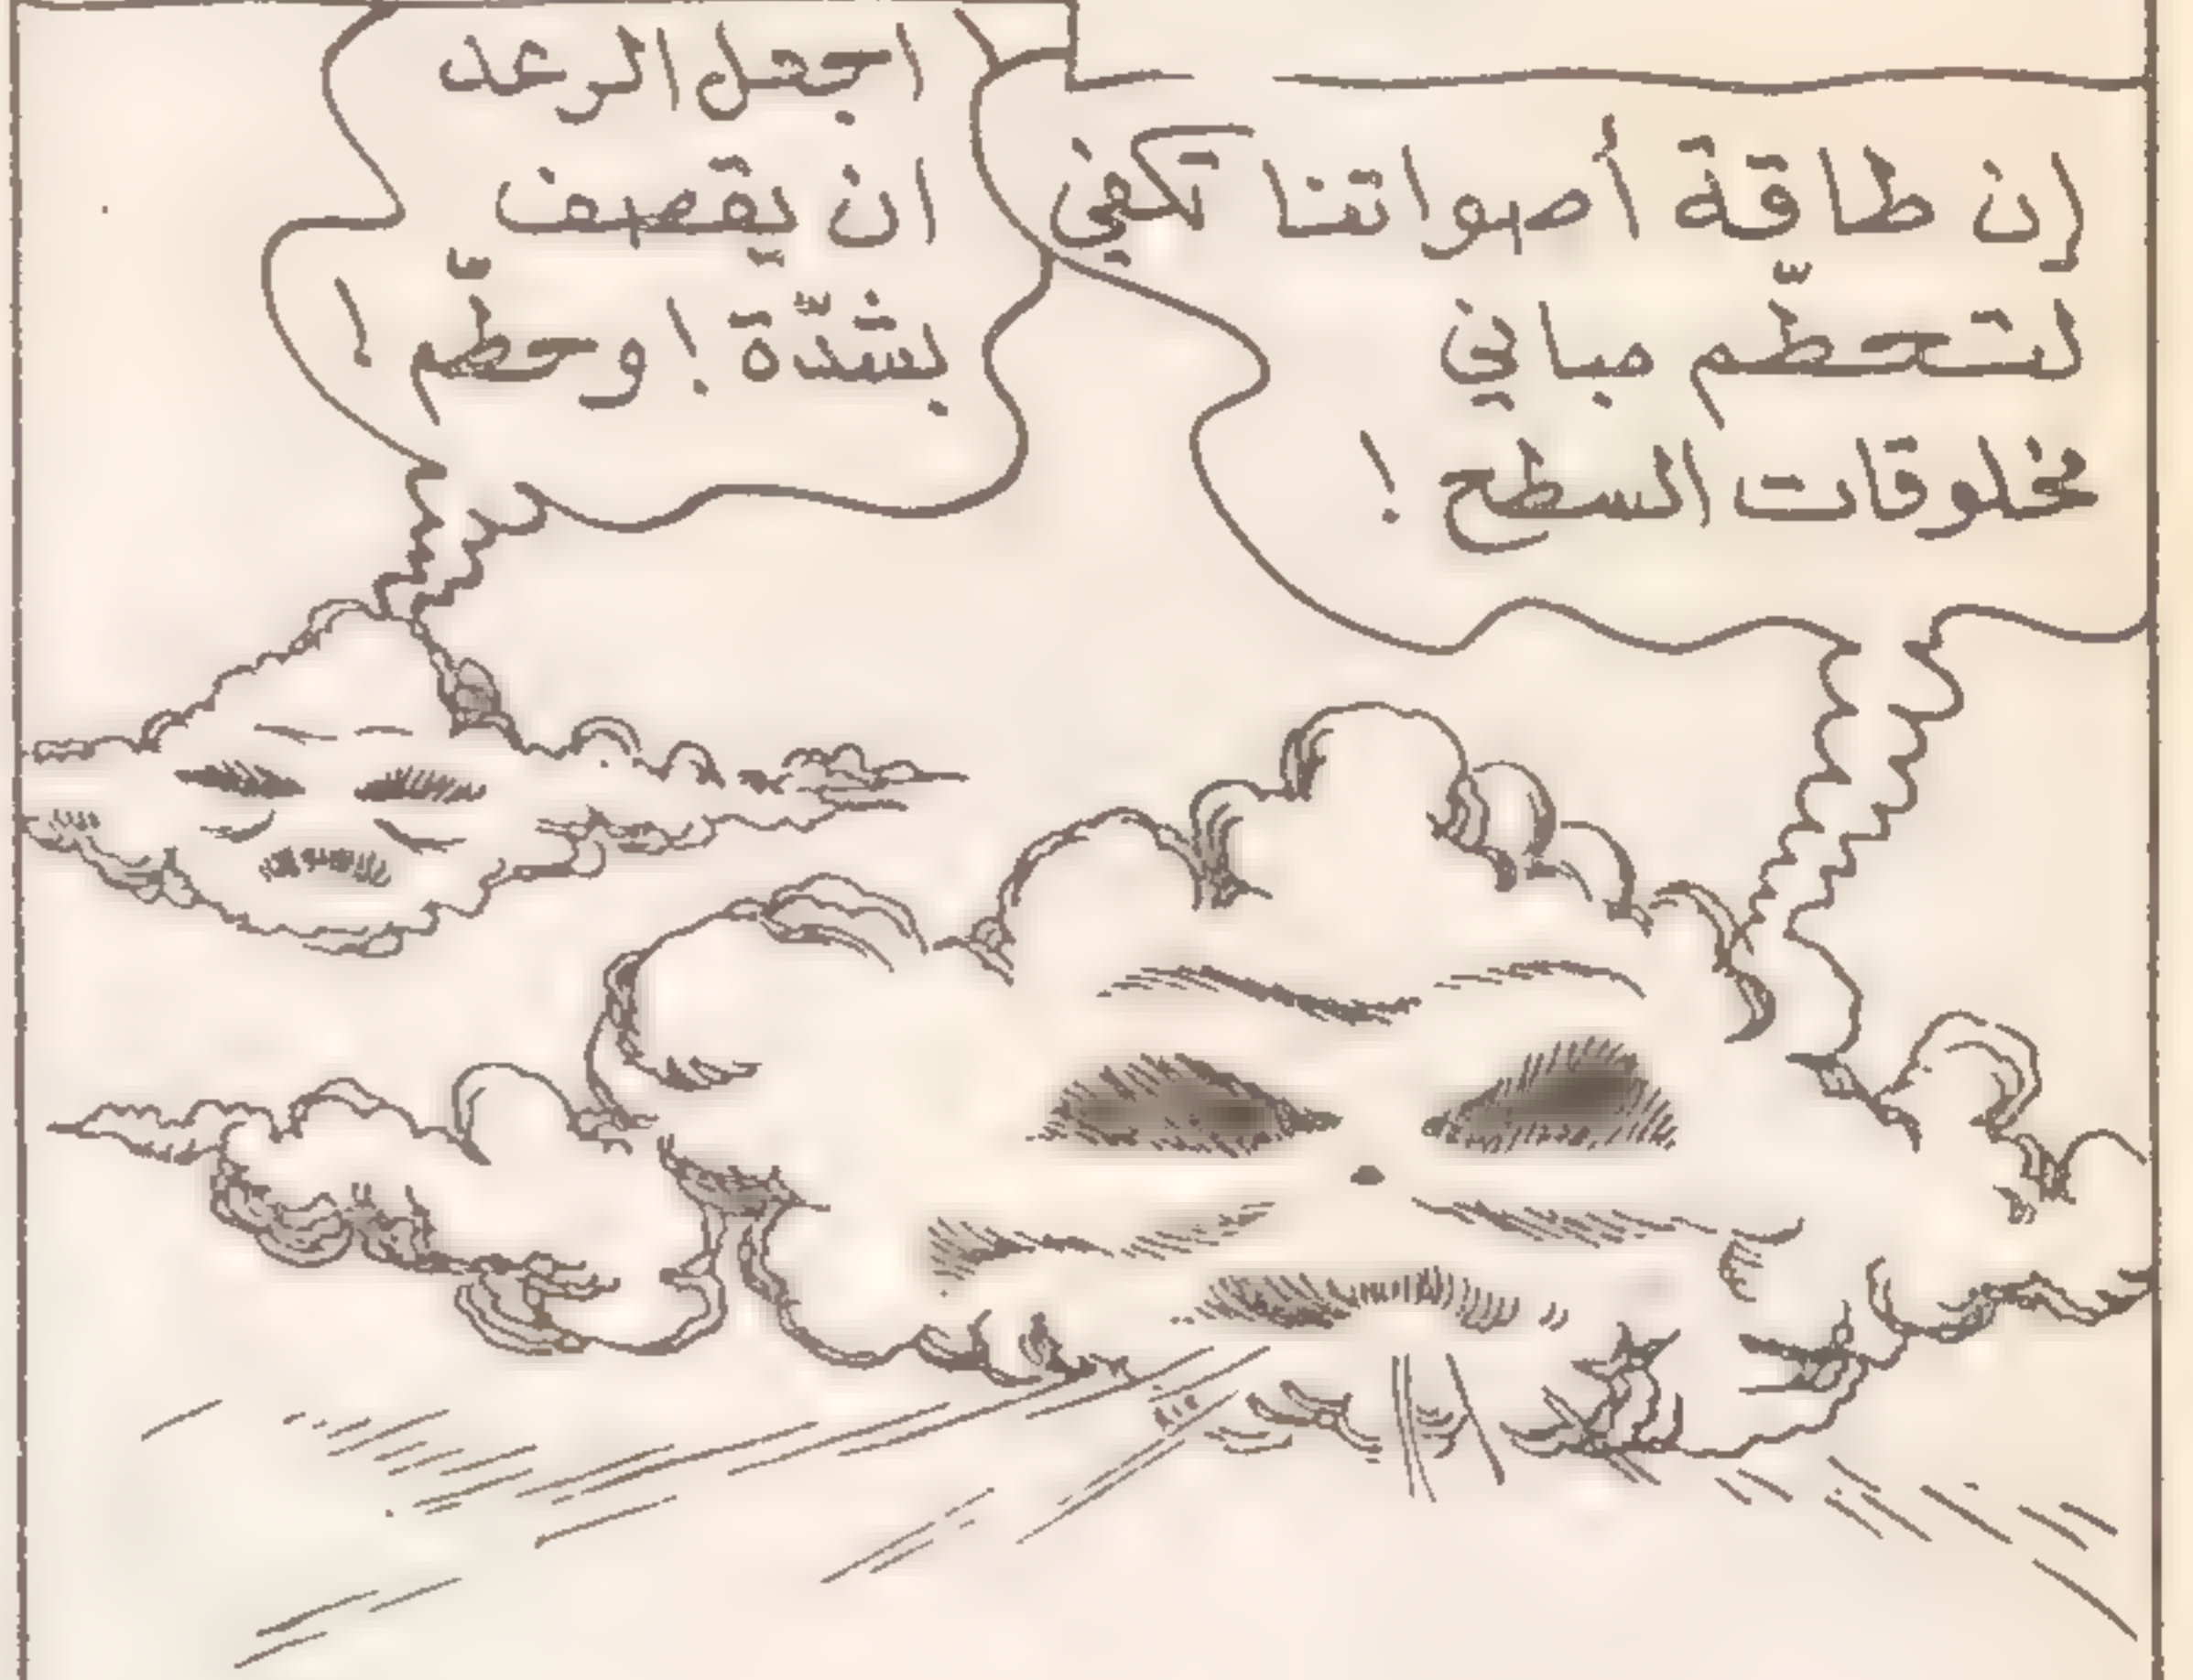 إن طاقة أصواتنا تكفي
لتحطّم مباني
مخلوقات السطح !
اجعل الرعد
ان يقصف
بشدّة ! وحطّم !